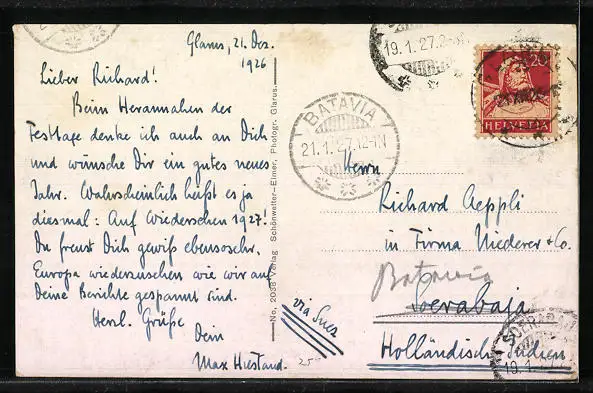 Glarus, 21. Dez.
1926
Lieber Richard!
Beim Herannahen der
Festtage denke ich auch an Dich
und wünsche Dir ein gutes neues
Jahr. Wahrscheinlich heißt es ja
diesmal: Auf Wiedersehen 1927!
Du freust Dich gewiß ebensosehr,
Europa wiederzusehen wie wir auf
Deine Berichte gespannt sind.
Herzl. Grüße
Dein
Max Hiestand.
No. 2038 Verlag Schönwetter-Elmer, Photogr. Glarus.
19.1.27.
20
HELVETIA
BATAVIA
21.1.27.12-1N
Herrn
Richard Aeppli
in Firma Niederer & Co.
Batavia
Soerabaja
via Suez
Holländisch-Indien
25
19.1.